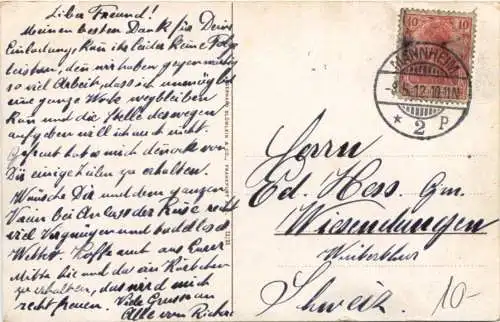 Lieber Freund!
Meinen besten Dank für Deine
Einladung, kann ihr leider keine Folge
leisten, denn wir haben gegenwärtig
so viel Arbeit, dass ich unmöglich
eine ganze Woche wegbleiben
kann und die Stelle deswegen
aufgeben will ich auch nicht.
Gefreut hat es mich dennoch von
Dir eine zu erhalten.
Wünsche Dir und dem ganzen
Verein bei Anlass der Reise recht
viel Vergnügen und
Wetter. Hoffe auch aus Eurer
Mitte hie und da ein Kärtchen
zu erhalten, das wird mich
recht freuen. Viele Grüsse an
Alle von Richard
10 10
MANNHEIM
5.12.
* 2 P
Herrn
Ed. Hess. Gm.
Wiesendangen
Winterthur
Schweiz.
10-